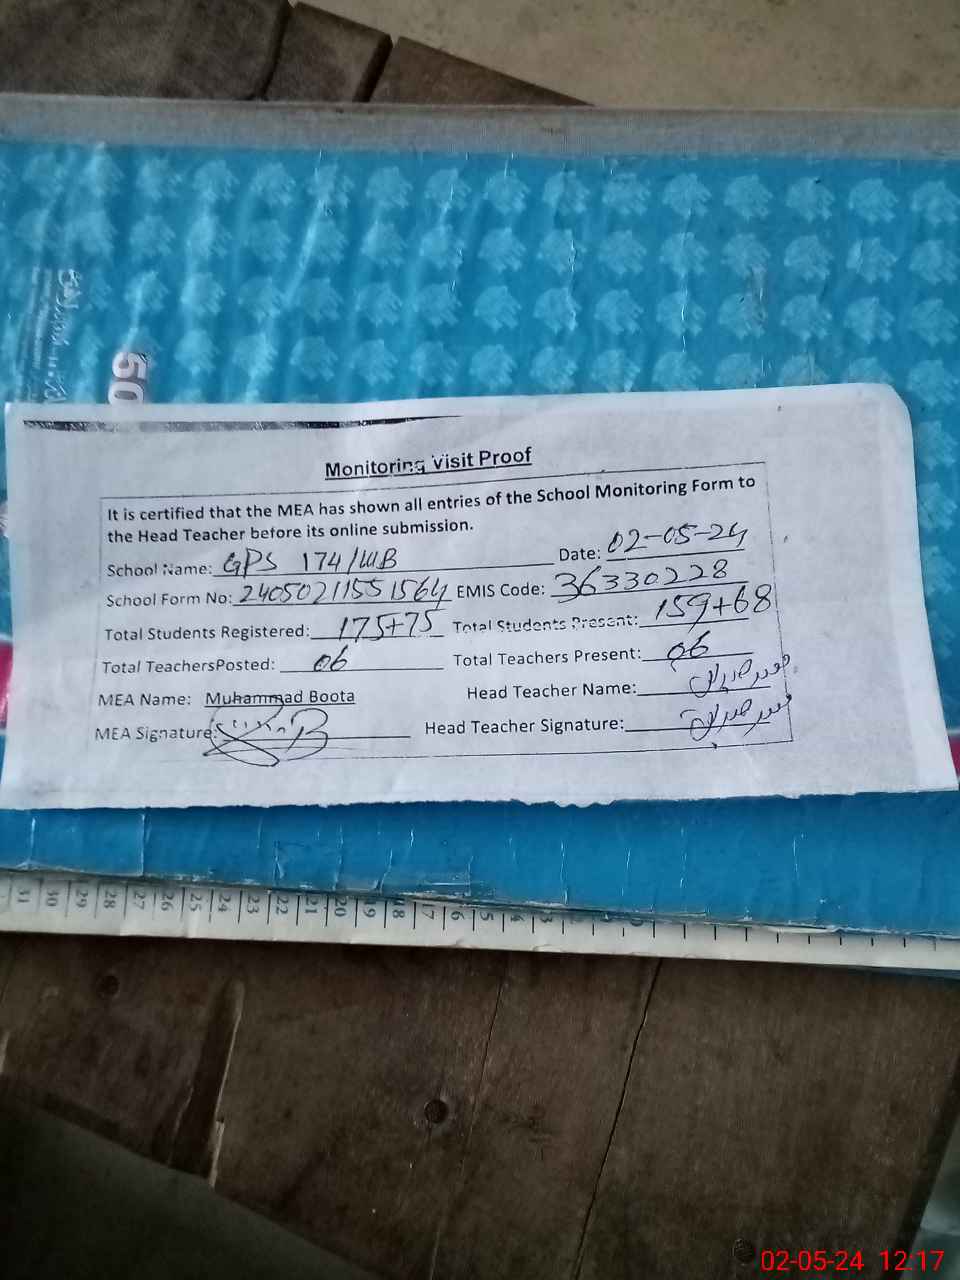 50
Monitoring Visit Proof
It is certified that the MEA has shown all entries of the School Monitoring Form to
the Head Teacher before its online submission.
School Name: GPS 174/WB Date: 02-05-24
School Form No: 24050211551564 EMIS Code: 36330228
Total Students Registered: 175+75 Total Students Present: 159+68
Total TeachersPosted: 06 Total Teachers Present: 06
MEA Name: Muhammad Boota Head Teacher Name:
MEA Signature: Head Teacher Signature:
31 30 29 28 27 26 25 24 23 22 21 20 19 18 17
02-05-24 12:17